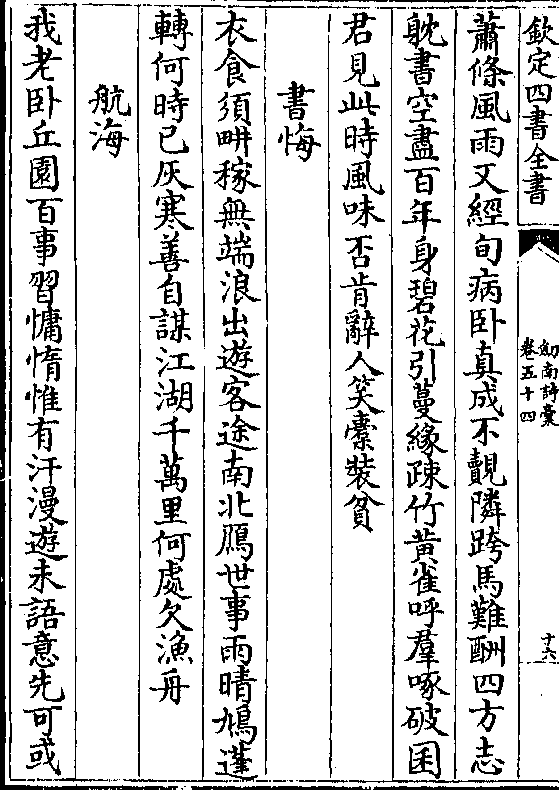 欽定四書全書
劎南詩稾
卷五十四
十六
蕭條風雨又經旬病卧真成不覿隣跨馬難酬四方志
躭書空盡百年身碧花引蔓緣疎竹黄雀呼羣啄破囷
君見此時風味否肯辭人笑槖装貧
書悔
衣食須畊稼無端浪出遊客途南北鴈世事雨晴鳩蓬
轉何時已灰寒善自謀江湖千萬里何處欠漁舟
航海
我老卧丘園百事習慵惰惟有汗漫遊未語意先可或